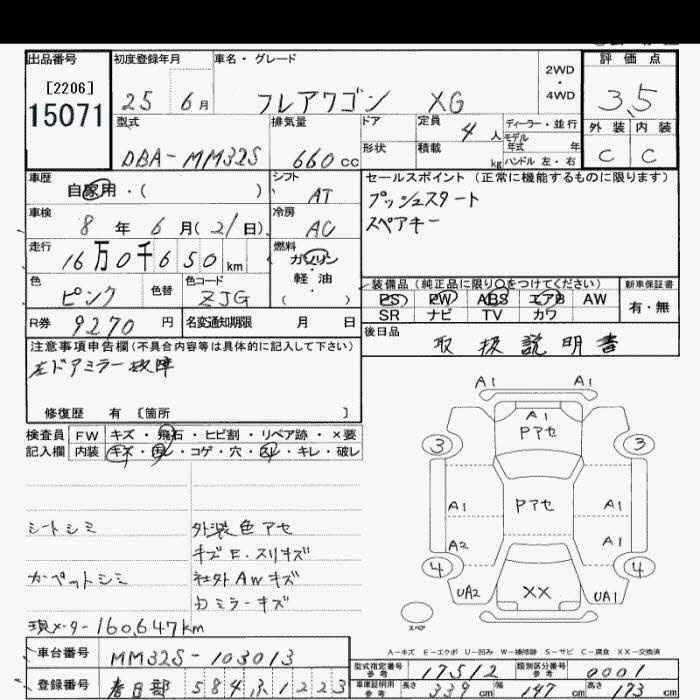 出品番号 初度登録年月 車名・グレード 2WD・4WD 評価点
[2206] 15071 25 6月 フレアワゴン XG 3.5
型式 排気量 ドア 定員 4人 ディーラー・並行 外装 内装
DBA-MM32S 660cc 形状 積載 kg モデル年式 年 ハンドル 左・右 C C
車歴 自家用・( ) シフト AT セールスポイント (正常に機能するものに限ります)
プッシュスタート
車検 8年6月(21日) 冷房 AC スペアキー
走行 16万0千650km 燃料 ガソリン・軽油 ( )
色 ピンク 色替 色コード ZJG 装備品(純正品に限り○をつけてください) 新車保証書
PS PW ABS エアB AW 有・無
SR ナビ TV カワ
R券 9270円 名変通知期限 月 日 後日品 取扱説明書
注意事項申告欄(不具合内容等は具体的に記入して下さい)
左ドアミラー故障
修復歴 有 [箇所 ]
検査員 FW キズ・飛石・ヒビ割・リペア跡・×要
記入欄 内装 キズ・汚レ・コゲ・穴・スレ・キレ・破レ
シートシミ 外装色アセ
キズE.スリキズ
カーペットシミ 社外AWキズ
カミラーキズ
現メーター160,647km
A1 A1
A1
Pアセ
3 3
Pアセ
A1 A1
A2 A1
4 4
UA2 XX UA1
スペア
A-キズ E-エクボ U-凹み W-補修跡 S-サビ C-腐食 XX-交換済
車台番号 MM32S-103013 型式指定番号 参考 17512 類別区分番号 参考 0001
登録番号 春日部 584 ふ 1223 車庫証明用 参考 長さ 339cm 幅 147cm 高さ 173cm